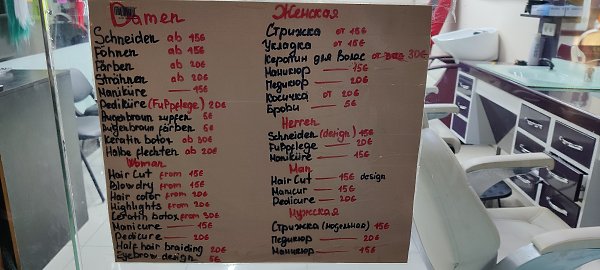 Damen
Schneiden ab 15€
Föhnen ab 15€
Färben ab 20€
Strähnen ab 20€
Maniküre — 15€
Pediküre (Fußpflege) 20€
Augenbraun zupfen 5€
Augenbraun färben 5€
Keratin botox ab 30€
Halbe flechten ab 20€
Woman
Hair Cut from 15€
Blowdry from 15€
Hair color from 20€
Highlights from 20€
Ceratin botox from 30€
Manicure — 15€
Pedicure — 20€
Half hair braiding 20€
Eyebrow design 5€
Женская
Стрижка от 15€
Укладка от 15€
Керотин для волос от 30€
Маникюр — 15€
Педикюр — 20€
Косичка от 20€
Брови — 5€
Herren
Schneiden (design) 15€
Fußpflege — 20€
Maniküre — 15€
Man
Hair Cut — 15€ design
Manicur — 15€
Pedicure — 20€
Мужская
Стрижка (модельное) 15€
Педикюр — 20€
Маникюр — 15€